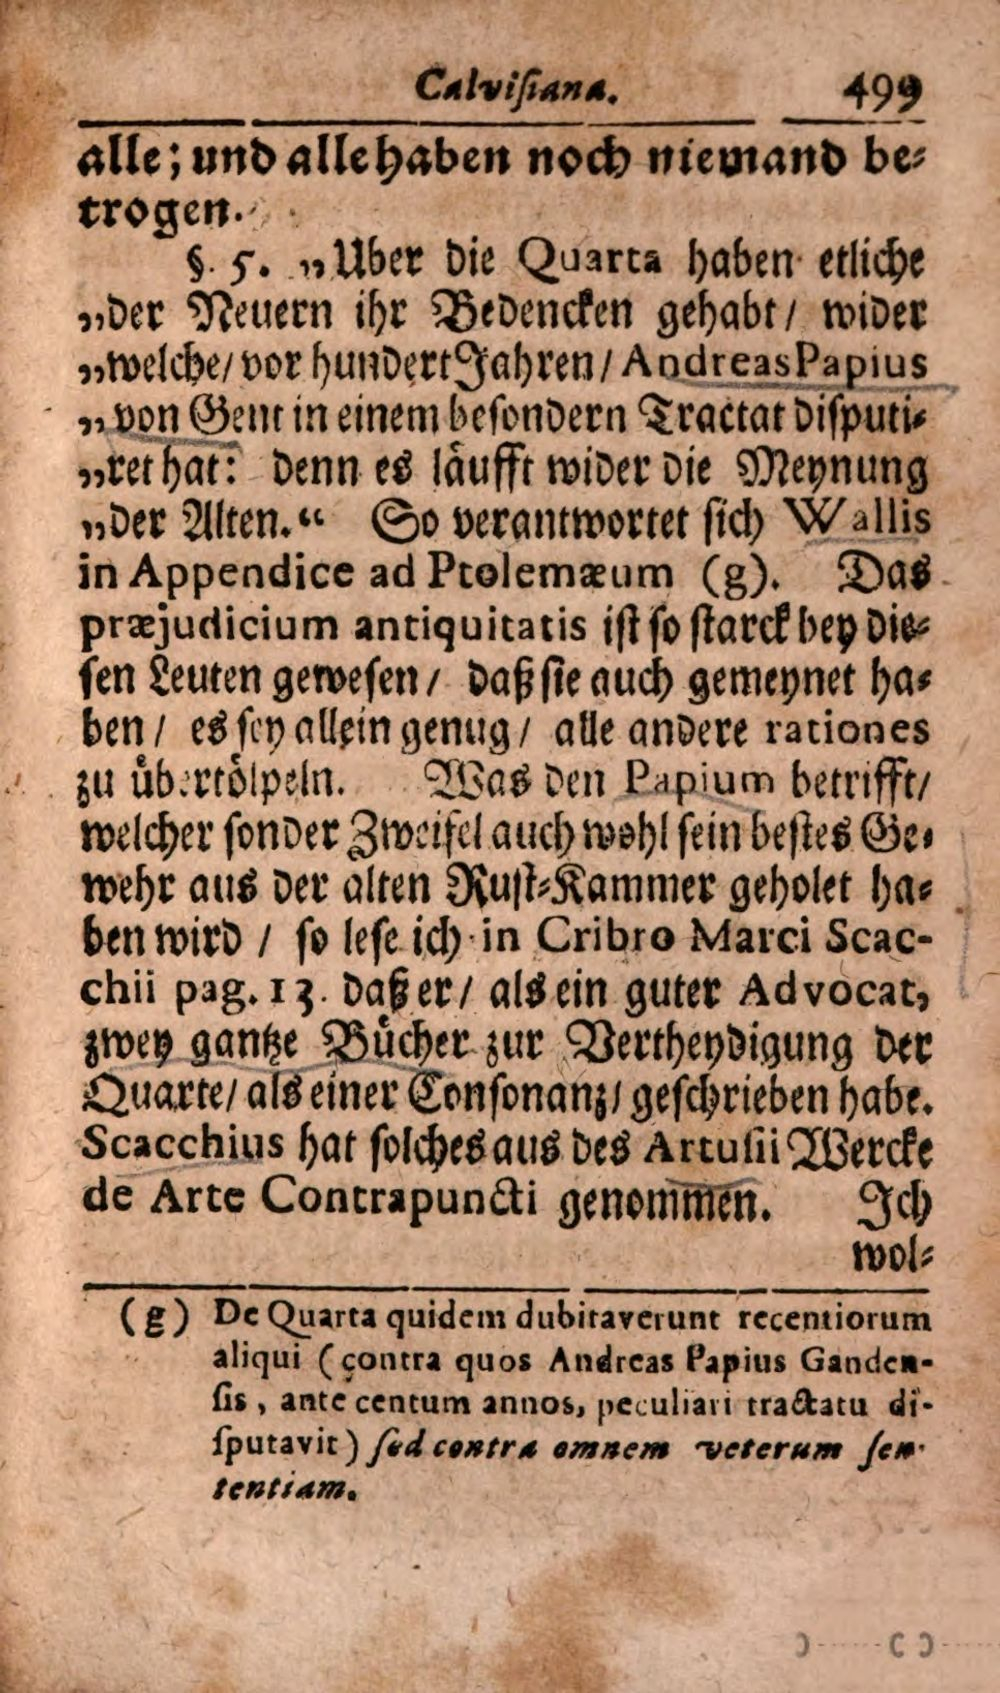 Calviſiana. 499
alle; und alle haben noch niemand be⸗
trogen.
§. 5. „Uber die Quarta haben etliche
„der Neuern ihr Bedencken gehabt/ wider
„welche/ vor hundert Jahren/ Andreas Papius
„von Gent in einem beſondern Tractat diſputi⸗
„ret hat: denn es läufft wider die Meynung
„der Alten.“ So verantwortet ſich Wallis
in Appendice ad Ptolemæum (g). Das
præjudicium antiquitatis iſt ſo ſtarck bey die⸗
ſen Leuten geweſen/ daß ſie auch gemeynet ha⸗
ben/ es ſey allein genug/ alle andere rationes
zu übertölpeln. Was den Papium betrifft/
welcher ſonder Zweifel auch wohl ſein beſtes Ge⸗
wehr aus der alten Ruſt⸗Kammer geholet ha⸗
ben wird / ſo leſe ich in Cribro Marci Scac-
chii pag. 13. daß er/ als ein guter Advocat,
zwey gantze Bücher zur Vertheydigung der
Quarte/ als einer Conſonanz/ geſchrieben habe.
Scacchius hat ſolches aus des Artuſii Wercke
de Arte Contrapuncti genommen. Ich
wol⸗
(g) De Quarta quidem dubitaverunt recentiorum
aliqui (contra quos Andreas Papius Ganden-
ſis, ante centum annos, peculiari tractatu di-
ſputavit) ſed contra omnem veterum ſen-
tentiam.